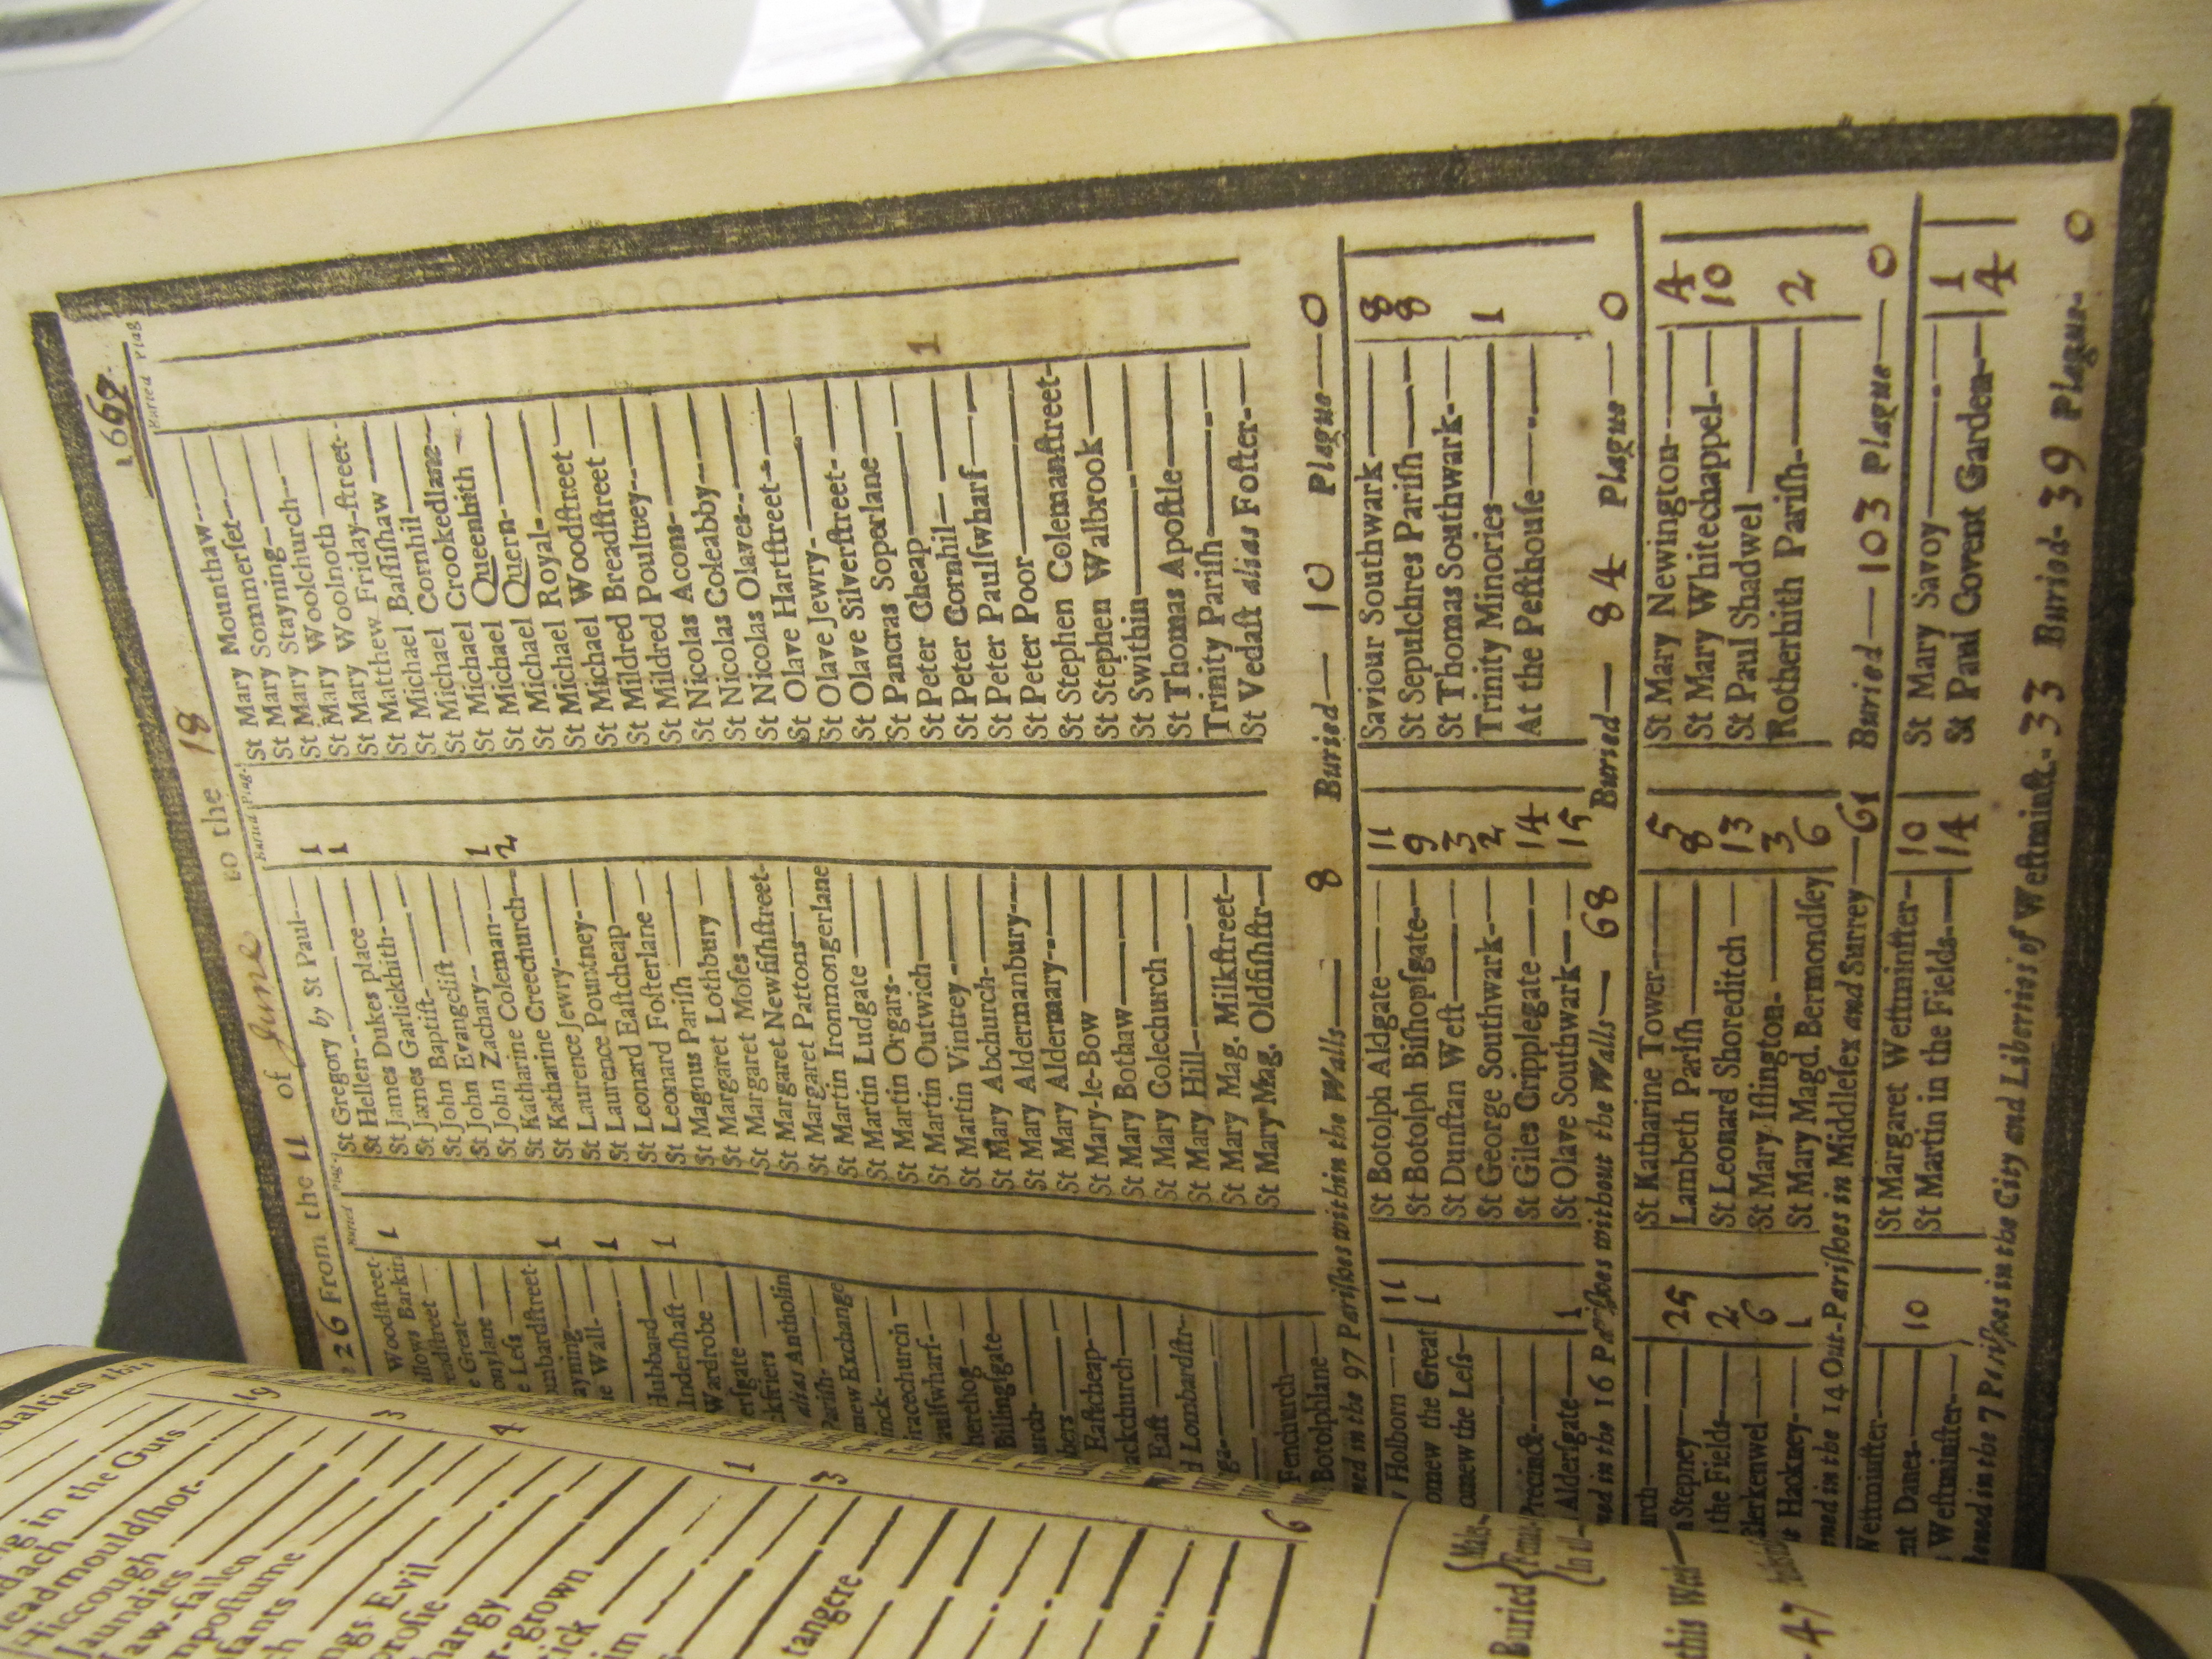 26 From the 11 of June to the 18 1667
Buried Plag.
Woodstreet- 1
llows Barkin
Great
e Less
ombardstreet- 1
ayning
he Wall- 1
Hubbard
Undershaft 1
Wardrobe
alias Antholin
Parish
mew Exchange
racechurch
aulswharf-
herehog
Billingsgate
urch
Eastcheap
ackchurch
East
d Lombardstr-
Fenchurch
Botolphlane
Buried Plag.
St Gregory by St Paul
St Hellen 1
St James Dukes place 1
St James Garlickhith
St John Baptist
St John Evangelist
St John Zachary
St Katharine Coleman 1
St Katharine Creechurch 2
St Katharine Jewry
St Laurence Jewry
St Laurence Pountney
St Leonard Eastcheap
St Leonard Fosterlane
St Magnus Parish
St Margaret Lothbury
St Margaret Moses
St Margaret Newfishstreet
St Margaret Pattons
St Martin Ironmongerlane
St Martin Ludgate
St Martin Orgars
St Martin Outwich
St Martin Vintrey
St Mary Abchurch
St Mary Aldermanbury
St Mary Aldermary
St Mary-le-Bow
St Mary Bothaw
St Mary Colechurch
St Mary Hill
St Mary Mag. Milkstreet
St Mary Mag. Oldfishstr
Buried Plag
St Mary Mounthaw
St Mary Sommerset
St Mary Stayning
St Mary Woolchurch
St Mary Woolnoth
St Mary Friday-street
St Matthew Friday-street
St Michael Bassishaw
St Michael Cornhil
St Michael Crookedlane
St Michael Queenhith
St Michael Quern
St Michael Royal
St Michael Woodstreet
St Mildred Breadstreet
St Mildred Poultrey
St Nicolas Acons
St Nicolas Coleabby
St Nicolas Olaves
St Olave Hartstreet
St Olave Jewry
St Olave Silverstreet
St Pancras Soperlane
St Peter Cheap 1
St Peter Cornhil
St Peter Paulswharf
St Peter Poor
St Stephen Colemanstreet
St Stephen Walbrook
St Swithin
St Thomas Apostle
Trinity Parish
St Vedast alias Foster
ned in the 97 Parishes within the Walls 8 Buried 10 Plague 0
Holborn 11
omew the Great 1
omew the Less
Precinct
Aldersgate 1
St Botolph Aldgate 11
St Botolph Bishopsgate 9
St Dunstan West 3
St George Southwark 2
St Giles Cripplegate 14
St Olave Southwark 15
Saviour Southwark 8
St Sepulchres Parish 8
St Thomas Southwark
Trinity Minories 1
At the Pesthouse
ned in the 16 Parishes without the Walls 68 Buried 84 Plague 0
urch
Stepney 25
the Fields 2
Clerkenwel 6
Hakney 1
St Katharine Tower 5
Lambeth Parish 8
St Leonard Shoreditch 13
St Mary Islington 3
St Mary Magd. Bermondsey 6
St Mary Newington 4
St Mary Whitechappel 10
St Paul Shadwel
Rotherhith Parish 2
ened in the 14 Out-Parishes in Middlesex and Surrey 61 Buried 103 Plague 0
ent Danes 10
Westminster
St Margaret Westminster 10
St Martin in the Fields 14
St Mary Savoy 1
St Paul Covent Garden 4
tened in the 7 Parishes in the City and Liberties of Westminst. 33 Buried 39 Plague 0
ualties this
19
ing in the Guts
dach
Headmouldshot
Hiccough
Jaundies
Jaw-fallen
mpostume
fants
ngs Evil
hargy
er-grown
tangere
Buried
this Week
47